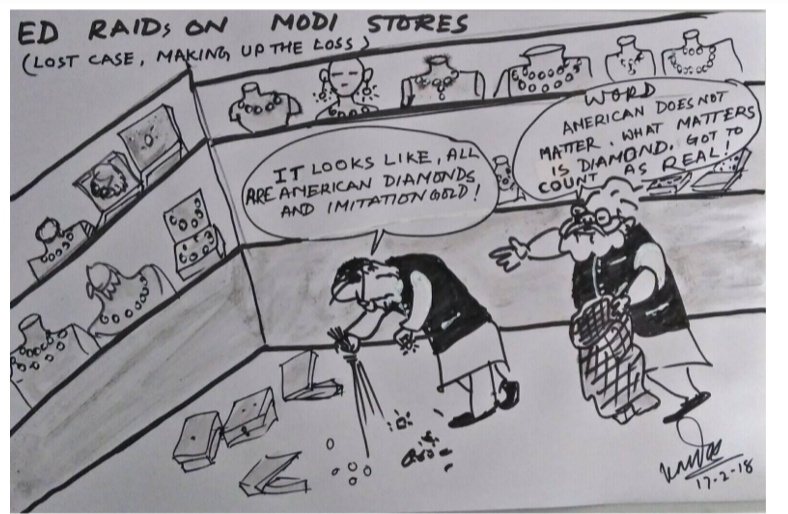 ED RAIDS ON MODI STORES
(LOST CASE, MAKING UP THE LOSS)
IT LOOKS LIKE, ALL
ARE AMERICAN DIAMONDS
AND IMITATION GOLD!
WORD
AMERICAN DOES NOT
MATTER. WHAT MATTERS
IS DIAMOND. GOT TO
COUNT AS REAL!
17-2-18